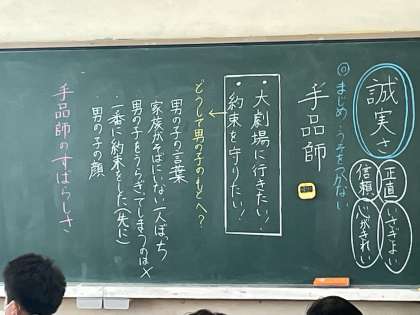 誠実さ
正直
いさぎよい
信頼
心がきれい
◎まじめ・うそをつかない
手品師
・大劇場に行きたい!
・約束を守りたい!
どうして男の子のもとへ?
男の子の言葉
家族がそばにいない一人ぼっち
男の子をうらぎってしまうのは×
・一番に約束をした(先に)
男の子の顔
手品師のすばらしさ